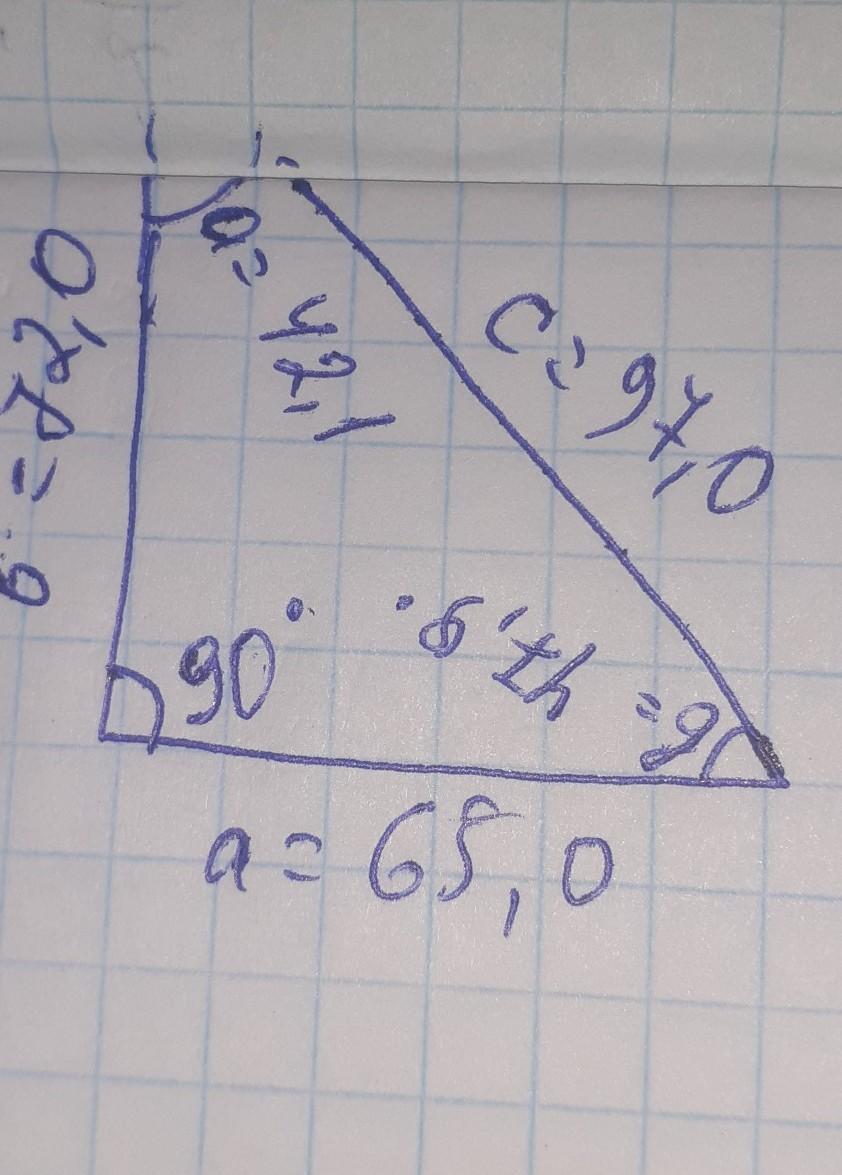 a = 42,1
c = 97,0
b = 72,0
90°
в = 47,9°
a = 65,0